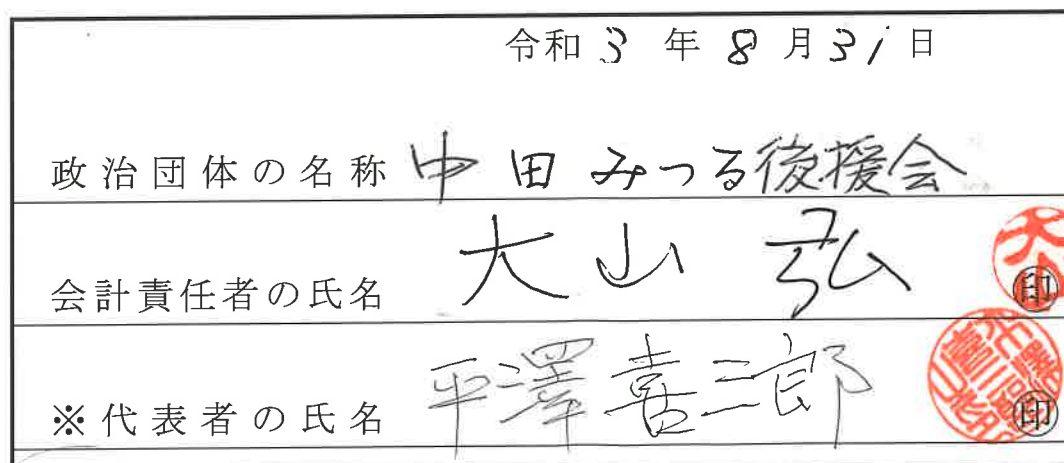 令和3年8月31日
政治団体の名称 中田みつる後援会
会計責任者の氏名 大山弘 大山 印
※代表者の氏名 平澤喜三郎 印